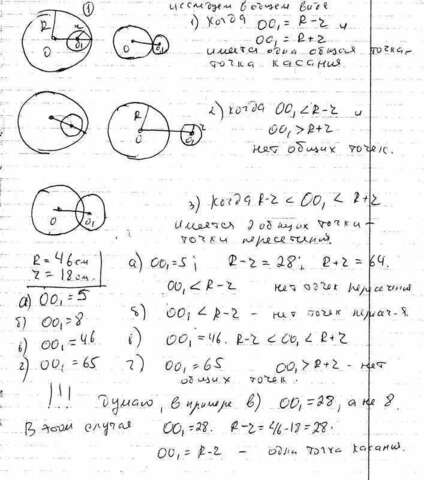 исследуем в общем виде
1) когда OO₁ = R-r и
OO₁ = R+r
имеется одна общая точка -
точка касания
2) когда OO₁ < R-r и
OO₁ > R+r
нет общих точек.
3) когда R-r < OO₁ < R+r
имеется 2 общих точки -
точки пересечения.
R = 46 см
r = 18 см.
а) OO₁ = 5
б) OO₁ = 8
в) OO₁ = 46
г) OO₁ = 65
а) OO₁ = 5; R-r = 28; R+r = 64.
OO₁ < R-r нет точек пересечения
б) OO₁ < R-r - нет точек перес-я
в) OO₁ = 46. R-r < OO₁ < R+r
г) OO₁ = 65 OO₁ > R+r - нет
общих точек.
!!! Думаю, в примере в) OO₁ = 28, а не 8.
В этом случае OO₁ = 28. R-r = 46-18 = 28.
OO₁ = R-r - одна точка касания.